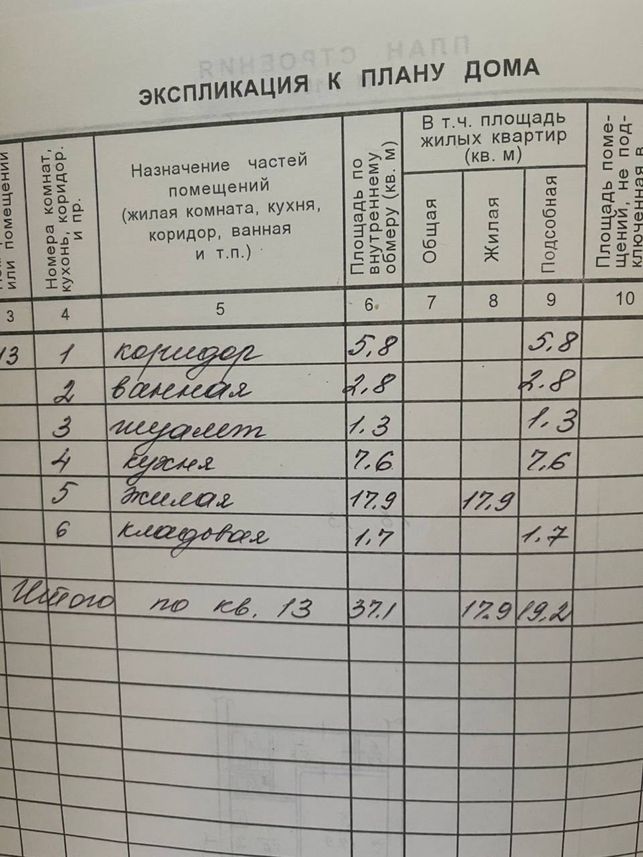 ЭКСПЛИКАЦИЯ К ПЛАНУ ДОМА
или помещений
Номера комнат, кухонь, коридор. и пр.
Назначение частей
помещений
(жилая комната, кухня,
коридор, ванная
и т.п.)
Площадь по внутреннему обмеру (кв. м)
В т.ч. площадь
жилых квартир
(кв. м)
Общая
Жилая
Подсобная
Площадь поме-
щений, не под-
ключенная в
3 4 5 6 7 8 9 10
13 1 коридор 5,8 5.8
2 ванная 2,8 2.8
3 туалет 1.3 1.3
4 кухня 7.6 7,6
5 жилая 17,9 17,9
6 кладовая 1.7 1.7
Итого по кв. 13 37.1 17.9 19,2